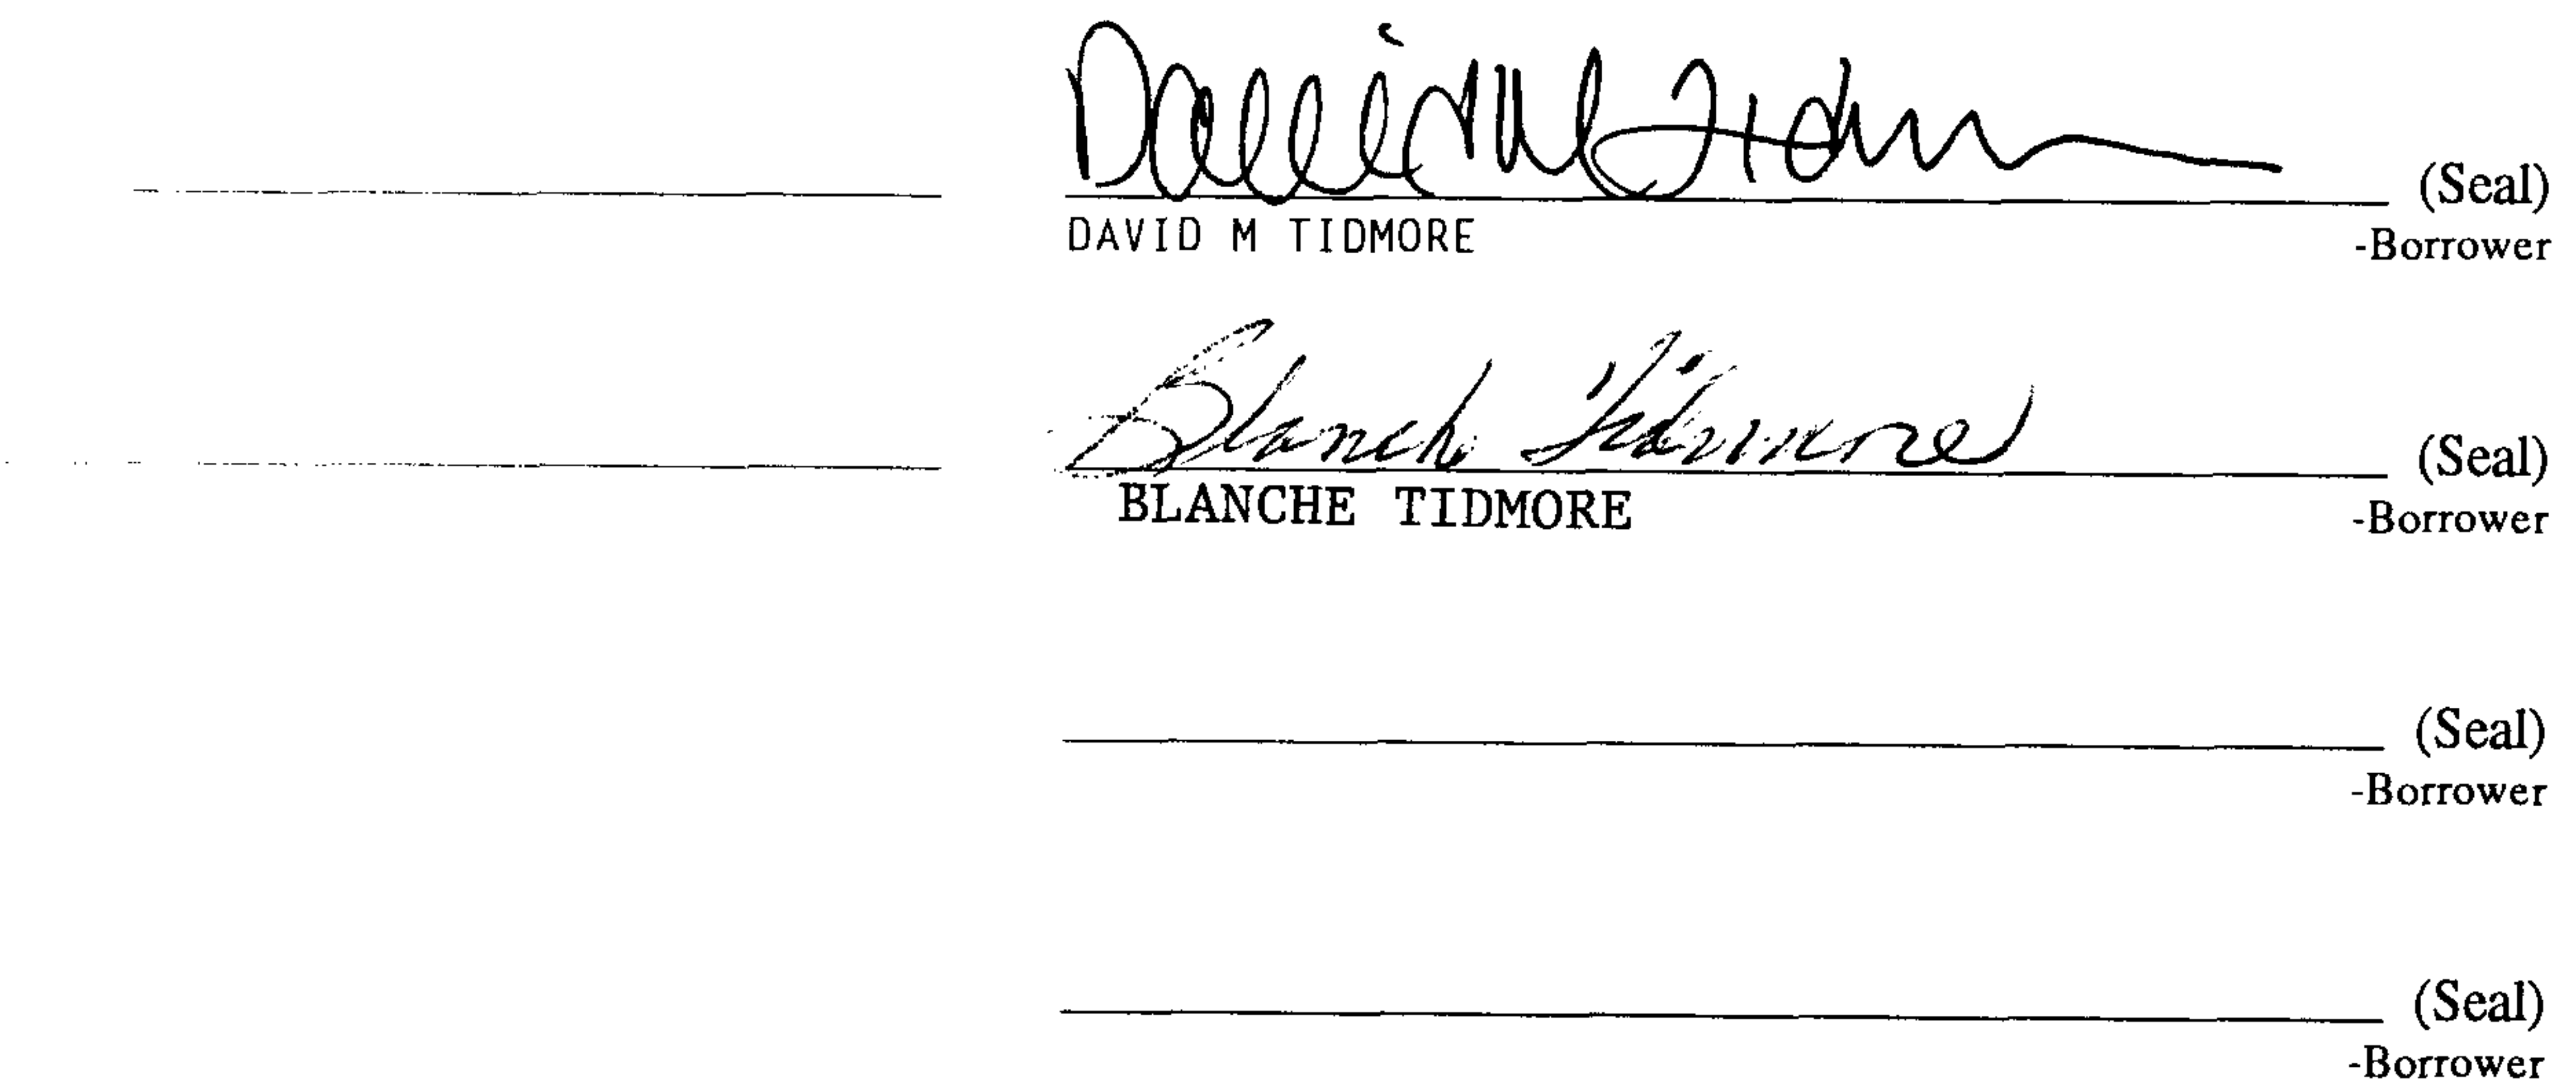 David M Tidm (Seal)
DAVID M TIDMORE -Borrower
Blanche Tidmore (Seal)
BLANCHE TIDMORE -Borrower
(Seal)
-Borrower
(Seal)
-Borrower